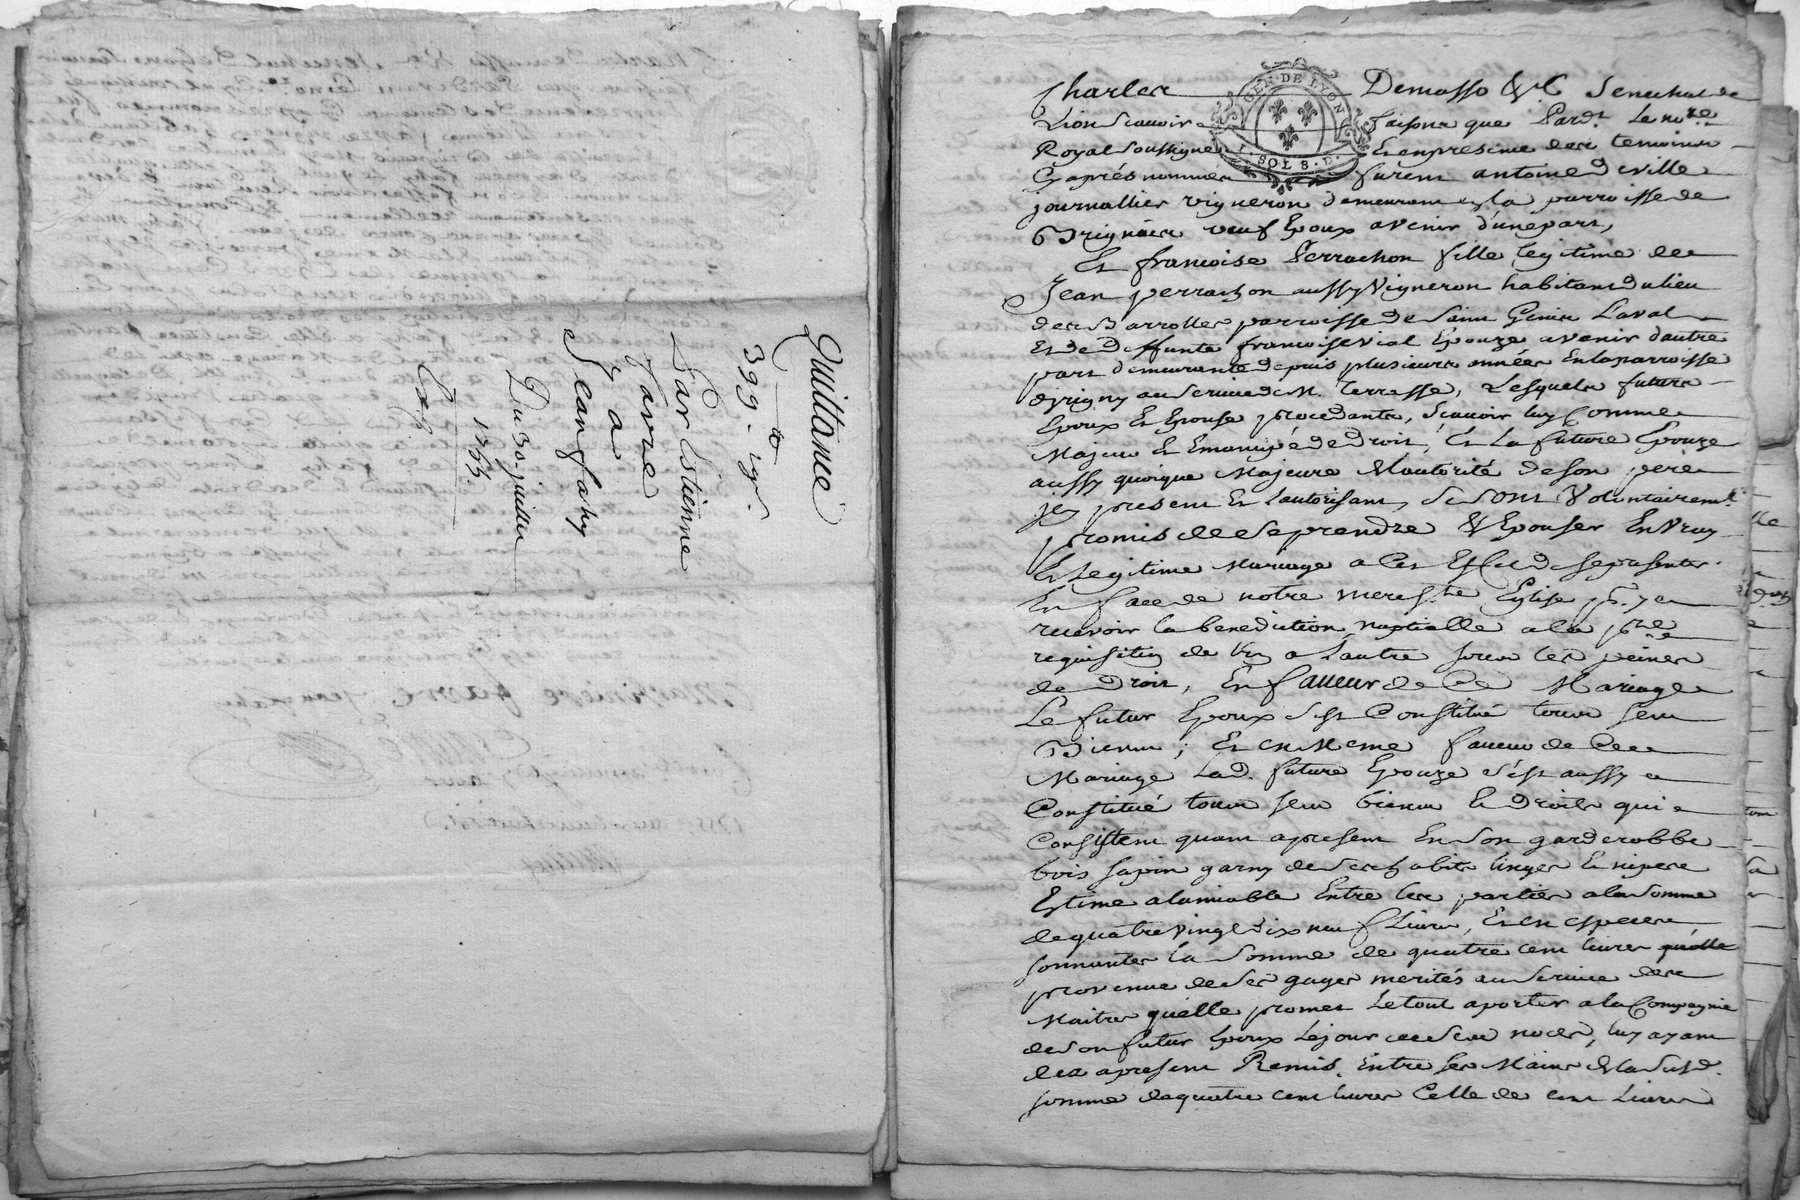 Quittance
399.tt 19s.
Par Estienne
favre
a
Jean faby
Du 30 juillet
1755
GEN. DE LYON
1. SOL 8. D.
Charles Demasso &C Senechal de
Lion Scavoir faisons que Pardt. Le nore.
Royal Soussigné Et en presence des temoins
Cy aprés nommes furent antoine Deville
journallier vigneron demeurant en la parroisse de
Brignais veuf Epoux avenir d'une part,
Et francoise Perrachon fille legitime de
Jean perrachon aussy Vigneron habitant du lieu
des Barrolles parroisse de Saint Genis Laval
Et de deffunte francoise vial Epouze avenir d'autre
part demeurante depuis plusieurs années en la parroisse
d'yrigny au service de M. Terrasse, Lesquels futurs
Epoux Et Epouse procedants, Scavoir luy Comme
Majeur Et Emancipé de Droit, Et La future Epouze
aussy quoique Majeure de L'autorité de son pere
jcy present Et L'autorisant, Se sont Volontairemt.
promis de se prendre & Epouser En vray
Et Legitime Mariage a Cet Effet de se presenter
En face de notre mere Ste. Eglise pr. y
recevoir la benediction nuptialle a la pre.
requisition de l'un a L'autre sous les peines
de Droit, En faveur de Ce Mariage
Le futur Epoux s'est Constitué tous ses
Biens, Et en Meme faveur de Ce
Mariage Lad. future Epouze s'est aussy
Constitué tous ses biens Et Droits qui
Consistent quant apresent En Son garderobbe
bois sapin garny de ses habits linges Et nipes
Estimé alamiable Entre les parties a la Somme
de quatre vingt dix neuf Livres, Et en especes
sonnantes la Somme de quatre cent livres quelle
provenue de ses gages merités au service des
Maitres quelle promet Le tout aporter a la Compagnie
de son futur Epoux Le jour de ses noces, luy ayant
des apresent Remis Entre ses Mains de la Susd.
somme de quatre cent livres Celle de cent Livres